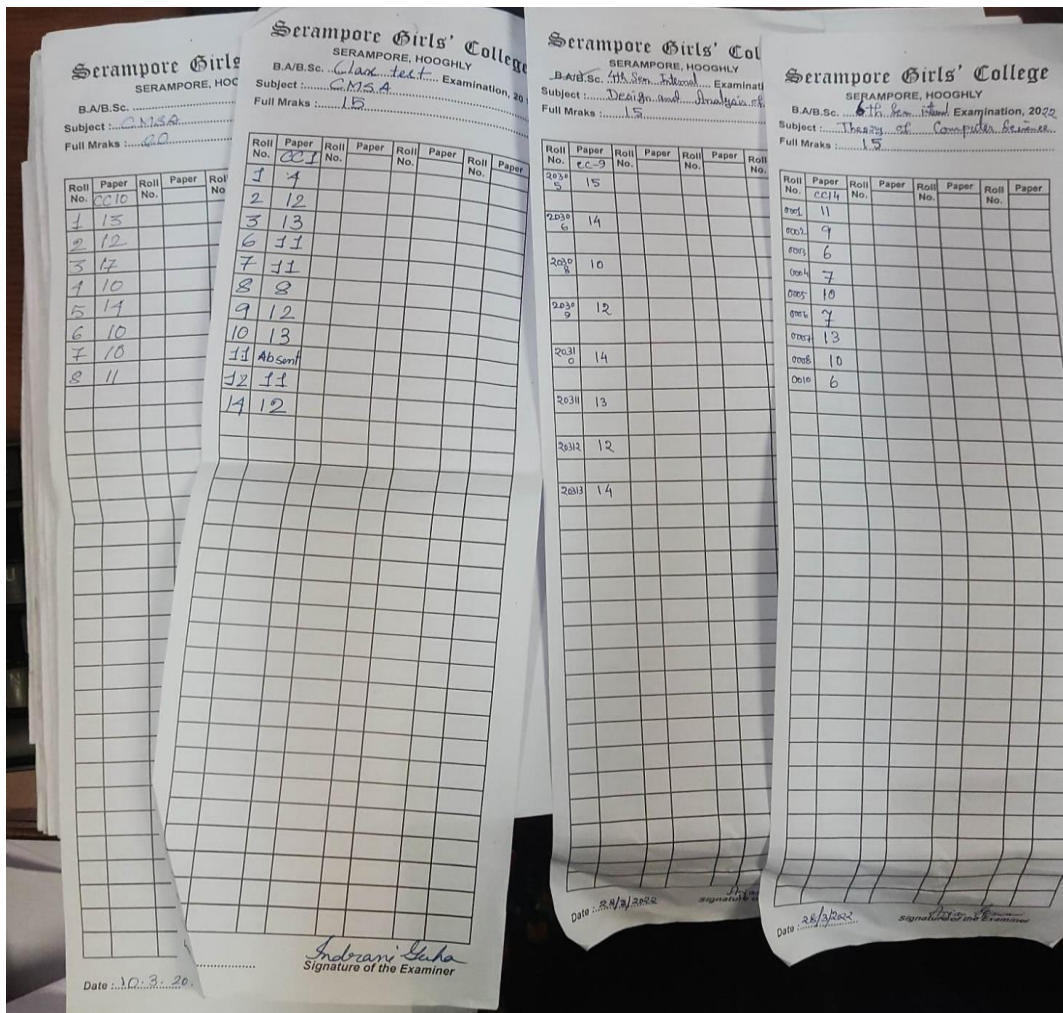 Serampore Girls
SERAMPORE, HOO
B.A/B.Sc.
Subject : CMSA
Full Mraks :
Roll No. Paper Roll No. Paper Rol No
CC10
1 13
2 12
3 17
4 10
5 14
6 10
7 10
8 11
Date : 10.3.20
Serampore Girls' College
SERAMPORE, HOOGHLY
B.A/B.Sc. Class test Examination, 20
Subject : CMSA
Full Mraks : 15
Roll No. Paper Roll No. Paper Roll No. Paper Roll No. Paper
CC1
1 4
2 12
3 13
6 11
7 11
8 8
9 12
10 13
11 Absent
12 11
14 12
Indrani Guha
Signature of the Examiner
Serampore Girls' Col
SERAMPORE, HOOGHLY
B.A/B.Sc. 4th Sem Internal Examinati
Subject : Design and Analysis of
Full Mraks : 15
Roll No. Paper Roll No. Paper Roll No. Paper Roll No.
CC-9
20305 15
20306 14
20308 10
20309 12
20310 14
20311 13
20312 12
20313 14
Date : 28/3/2022
Signature o
Serampore Girls' College
SERAMPORE, HOOGHLY
B.A/B.Sc. 6th Sem Examination, 2022
Subject : Theory of Computer Science
Full Mraks : 15
Roll No. Paper Roll No. Paper Roll No. Paper Roll No. Paper
CC14
0001 11
0002 9
0003 6
0004 7
0005 10
0006 7
0007 13
0008 10
0010 6
Date : 28/3/2022
Signature of the Examiner